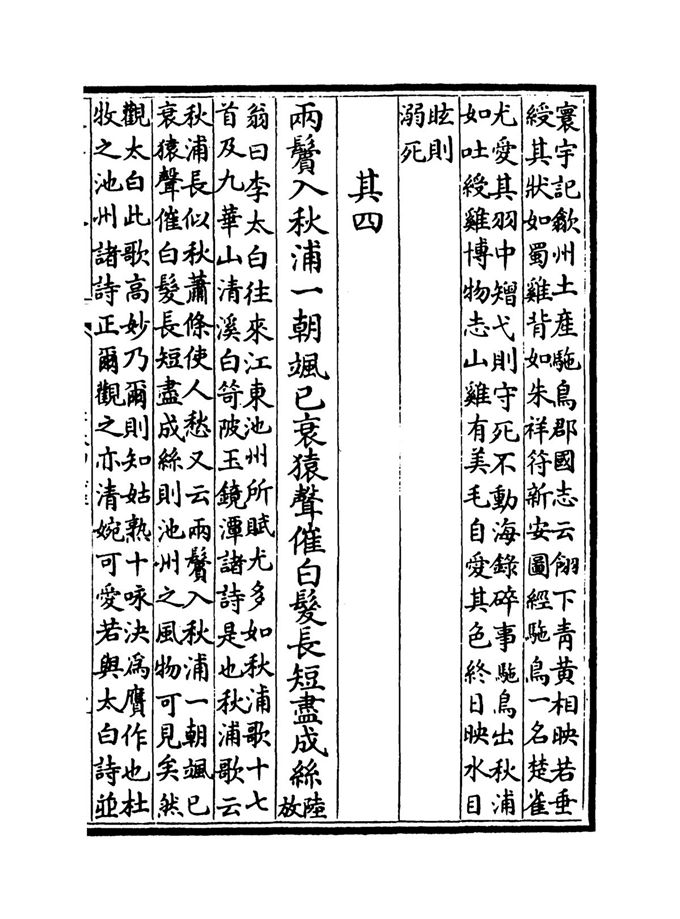 寰宇記歙州土産駞鳥郡國志云翎下青黄相映若垂
綬其狀如蜀雞背如朱祥符新安圖經駞鳥一名楚雀
尤愛其羽中矰弋則守死不動海錄碎事駞鳥出秋浦
如吐綬雞博物志山雞有美毛自愛其色終日映水目
眩則
溺死
其四
兩鬢入秋浦一朝颯已衰猿聲催白髮長短盡成絲
陸
放
翁曰李太白往來江東池州所賦尤多如秋浦歌十七
首及九華山清溪白笴陂玉鏡潭諸詩是也秋浦歌云
秋浦長似秋蕭條使人愁又云兩鬢入秋浦一朝颯已
衰猿聲催白髮長短盡成絲則池州之風物可見矣然
觀太白此歌高妙乃爾則知姑熟十咏決爲贋作也杜
牧之池州諸詩正爾觀之亦清婉可愛若與太白詩並